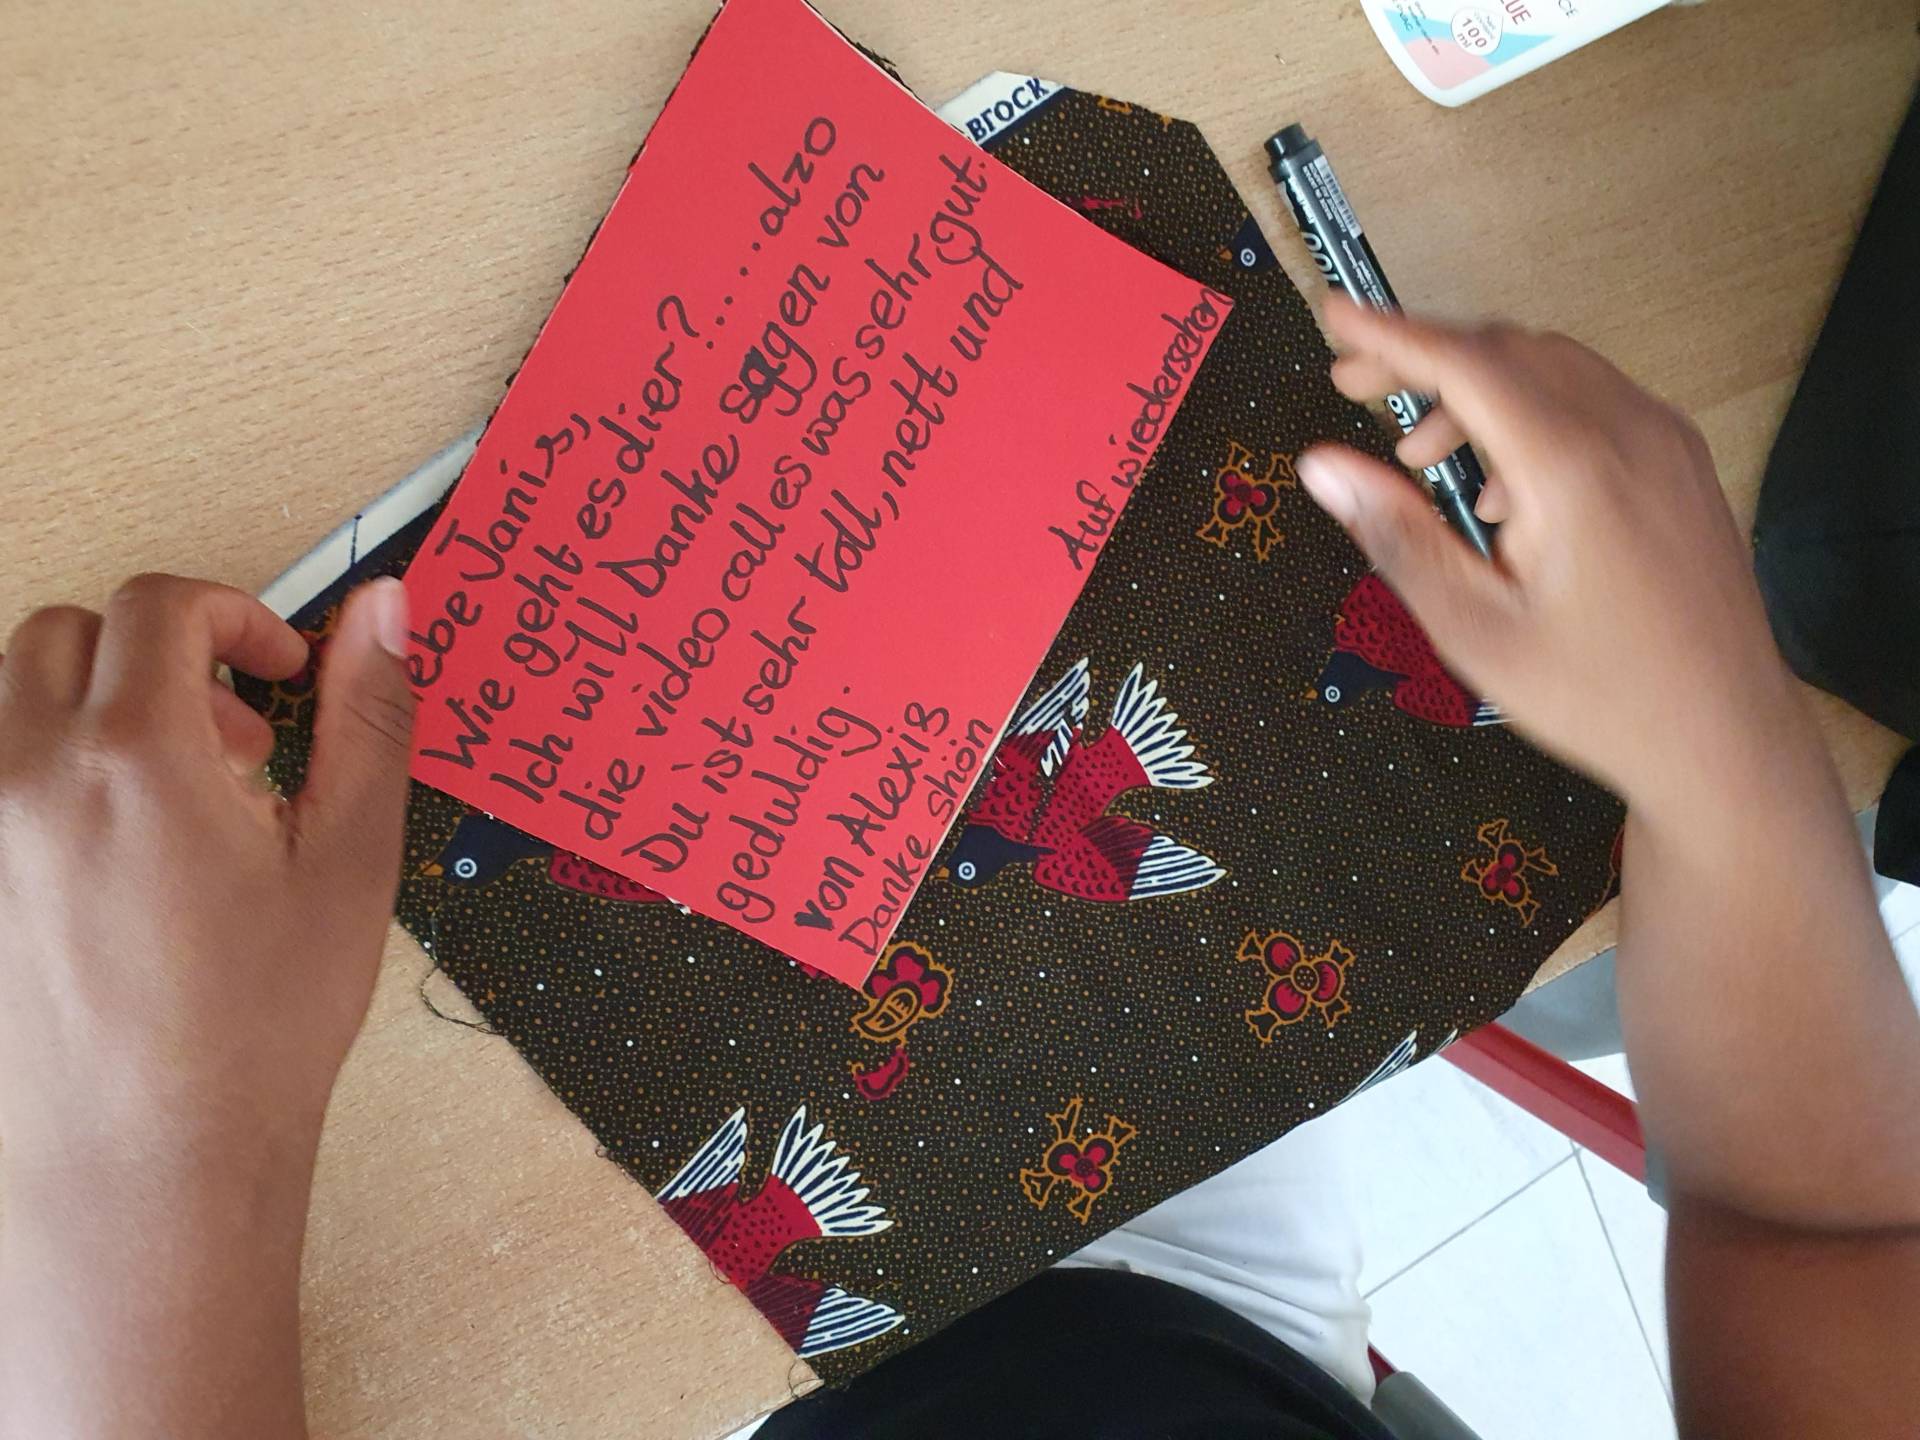 ebe Janis,
Wie geht es dier?.....alzo
Ich will Danke sagen von
die video call es was sehr gut.
Du ist sehr toll, nett und
geduldig.
von Alexiß
Danke shön
Auf wiedersehen
BLOCK
100
ml